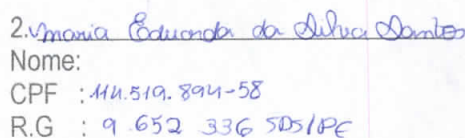 2. Maria Eduarda da Silva Santos
Nome:
CPF : 114.519.894-58
R.G : 9 652 336 SDS/PE